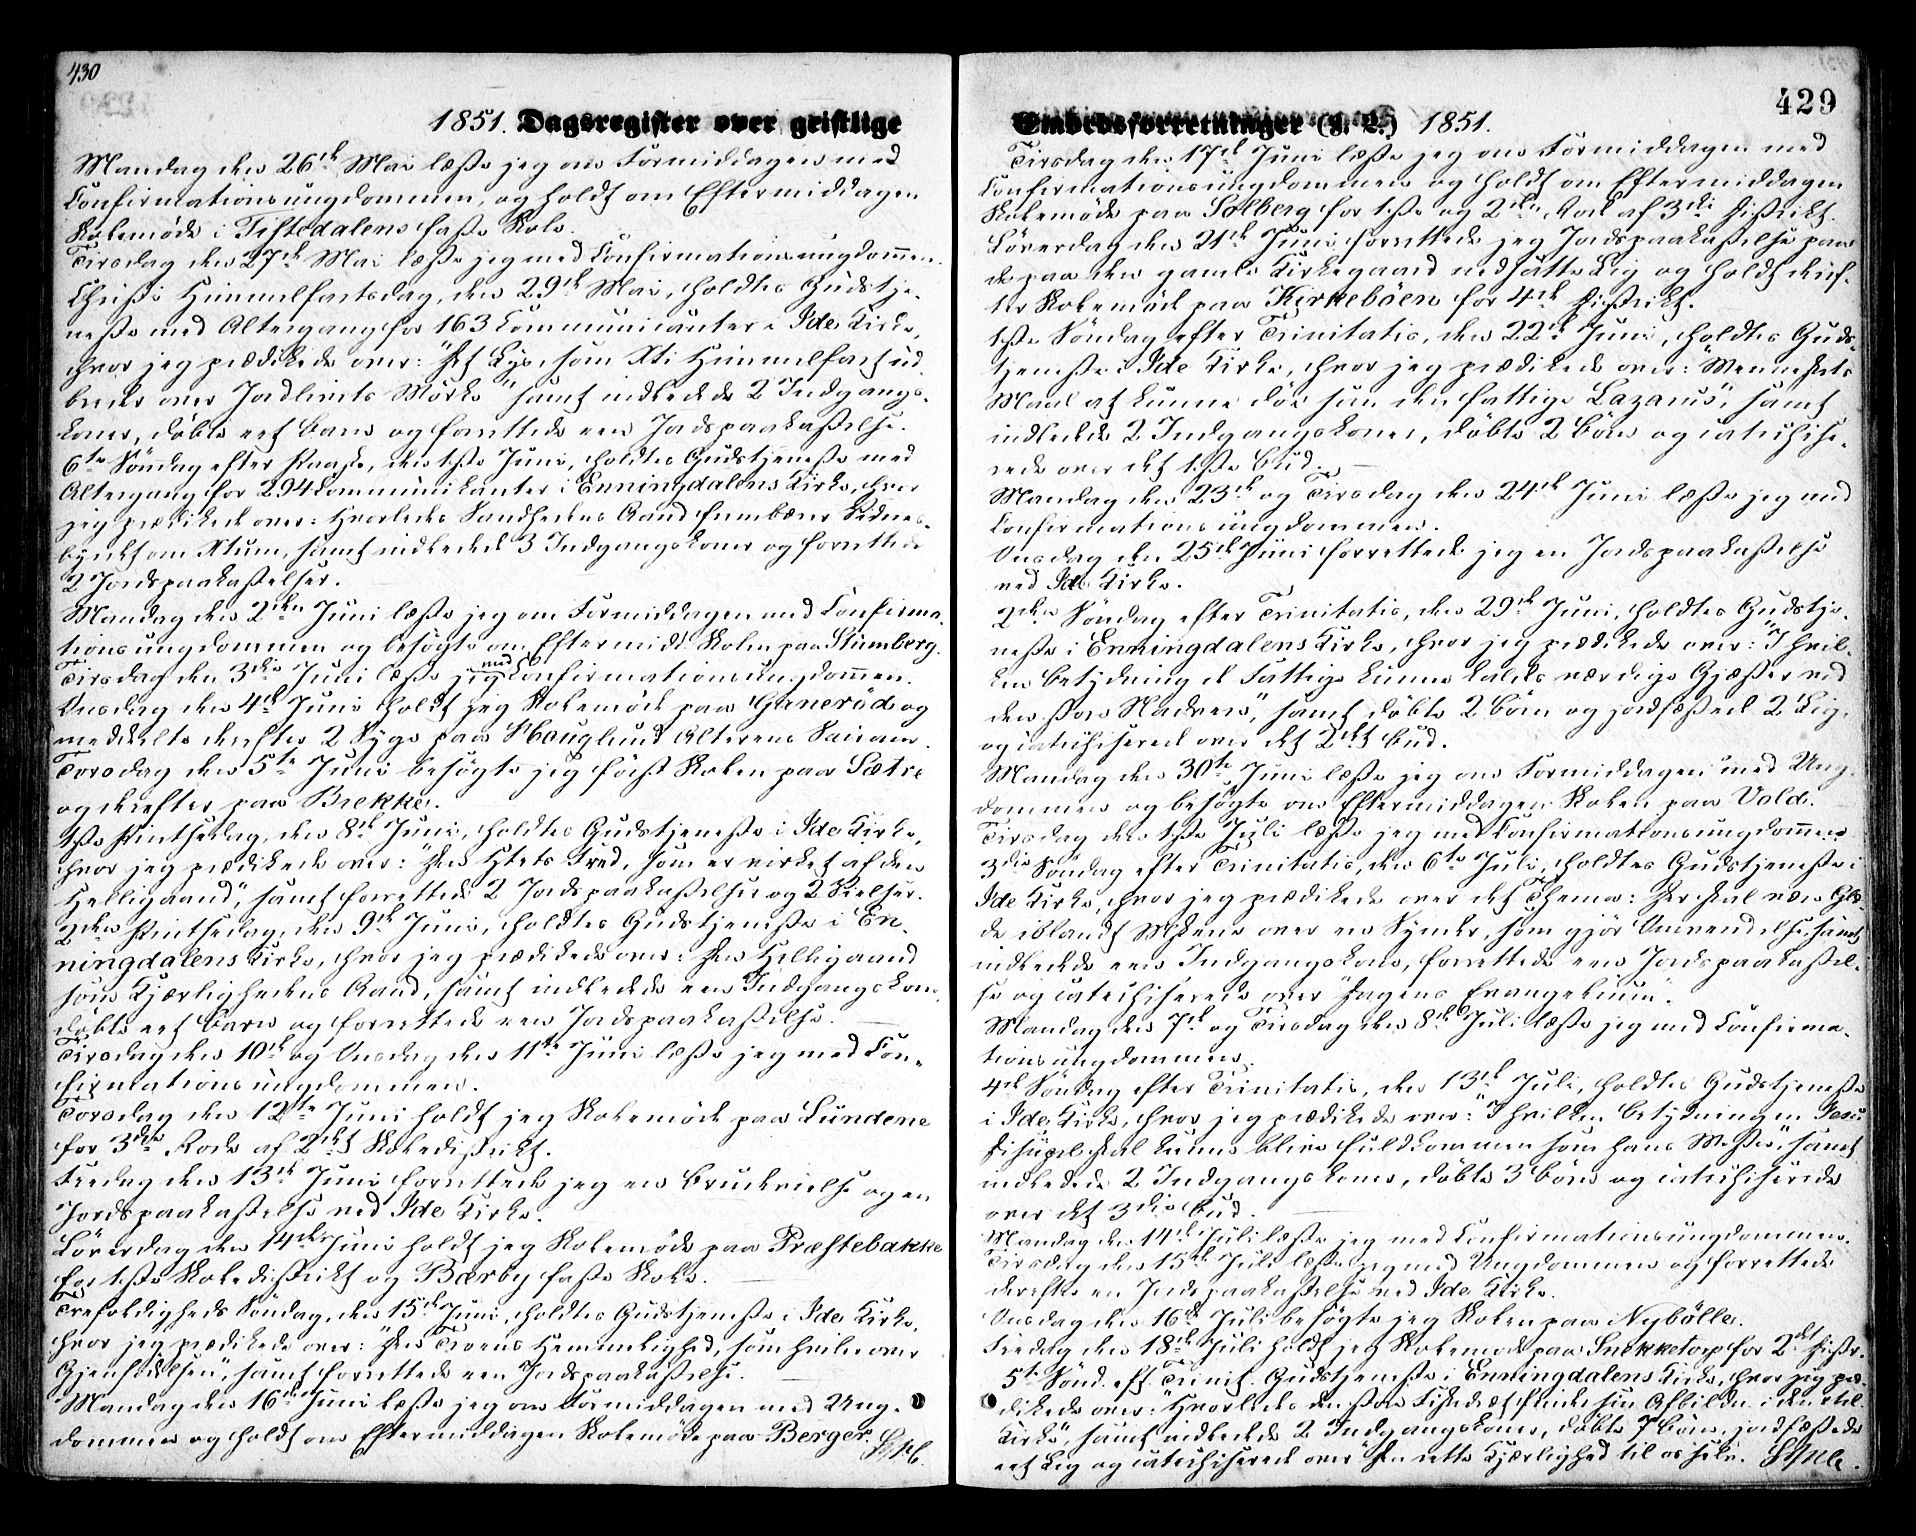 430
1851. Dagsregister over geistlige
Mandag den 26de Mai læste jeg om Formiddagen med
Confirmationsungdommen, og holdt om Eftermiddagen
Skolemöde i Tistedalens faste Skole.
Tirsdag den 27de Mai læste jeg med Confirmationsungdommen.
Christi Himmelfartsdag, den 29de Mai, holdtes Gudstje-
neste med Altergang for 163 Communicanter i Ide Kirke,
hvor jeg prædikede over: "Det Lys, som Xti Himmelfart ud
breder over Jordlivets Mörke" samt indledede 2 Indgangs-
koner, döbte eet Barn og forrettede een Jordspaakastelse.
6te Söndag efter Paaske, den 1ste Juni, holdtes Gudstjeneste med
Altergang for 294 Communikanter i Enningdalens Kirke, hvor
jeg prædikede over: Hvorledes Sandhedens Aand frembærer Vidnes-
byrdet om Xtum, samt indledede 3 Indgangskoner og forrettede
2 Jordspaakastelser.
Mandag den 2den Juni læste jeg om Formiddagen med Confirma-
tionsungdommen og besögte om Eftermidd. Skolen paa Stumberg.
Tirsdag den 3die Juni læste jeg med Confirmationsungdommen.
Onsdag den 4de Juni holdt jeg Skolemöde paa Ganeröd og
meddelte derefter 2 Syge paa Houglund Alterens Sacram.
Torsdag den 5te Juni besögte jeg först Skolen paa Sætre
og derefter paa Brekke.
1ste Pintsedag, den 8de Juni, holdtes Gudstjeneste i Ide Kirke,
hvor jeg prædikede over: "Den Htets Fred, som er virket af den
Helligaand", samt forrettede 2 Jordspaakastelser og 2 Vielser.
2den Pintsedag, den 9de Juni, holdtes Gudstjeneste i En-
ningdalens Kirke, hvor jeg prædikede over: Den Helligaand
som Kjærlighedens Aand, samt indledede een Indgangskone,
döbte eet Barn og forrettede een Jordspaakastelse.
Tirsdag den 10de og Onsdag den 11te Juni læste jeg med Con-
firmationsungdommen.
Torsdag den 12te Juni holdt jeg Skolemöde paa Lundene
for 3die Rode af 2det Skoledistrikt.
Fredag den 13de Juni forrettede jeg en Brudevielse og en
Jordspaakastelse ved Ide Kirke.
Löverdag den 14de Juni holdt jeg Skolemöde paa Præstebakke
for 1ste Skoledistrikt og Bærby faste Skole.
Trefoldigheds Söndag, den 15de Juni, holdtes Gudstjeneste i Ide Kirke,
hvor jeg prædikede over: "Den Troens Hemmelighed, som hviler over
Gjenfödelsen", samt forrettede een Jordspaakastelse.
Mandag den 16de Juni læste jeg om Formiddagen med Ung-
dommen og holdt om Eftermiddagen Skolemöde paa Berger.
429
Embedsforretninger (s. L.) 1851.
Tirsdag den 17de Juni læste jeg om Formiddagen med
Confirmationsungdommen og holdt om Eftermiddagen
Skolemöde paa Solberg for 1ste og 2den Rode af 3die Distrikt.
Löverdag den 21de Juni forrettede jeg Jordspaakastelse paa
de paa den gamle Kirkegaard nedsatte Lig og holdt deref-
ter Skolemöde paa Kirkeböen for 4de Distrikt.
1ste Söndag efter Trinitatis, den 22de Juni, holdtes Guds-
tjeneste i Ide Kirke, hvor jeg prædikede over: "Menneskets
Maal at kunne döe som den fattige Lazarus", samt
indledede 2 Indgangskoner, döbte 2 Börn og catechise-
rede over det 1ste Bud.
Mandag den 23de og Tirsdag den 24de Juni læste jeg med
Confirmationsungdommen.
Onsdag den 25de Juni forrettede jeg en Jordspaakastelse
ved Ide Kirke.
2den Söndag efter Trinitatis, den 29de Juni, holdtes Gudstje-
neste i Enningdalens Kirke, hvor jeg prædikede over: "I hvil-
ken Betydning de Fattige kunne kaldes værdige Gjæster ved
den store Nadvere", samt döbte 2 Börn og jordfæstede 2 Lig,
og catechiserede over det 2det Bud.
Mandag den 30te Juni læste jeg om Formiddagen med Ung-
dommen og besögte om Eftermiddagen Skolen paa Vold.
Tirsdag den 1ste Juli læste jeg med Confirmationsungdommen
3die Söndag efter Trinitatis, den 6te Juli, holdtes Gudstjeneste i
Ide Kirke, hvor jeg prædikede over det Thema: Der skal være Glæ-
de iblandt Mskene over en Synder, som gjör Omvendelse, samt
indledede een Indgangskone, forrettede een Jordspaakastel-
se og catechiserede over Dagens Evangelium.
Mandag den 7de og Tirsdag den 8de Juli læste jeg med Confirma-
tionsungdommen.
4de Söndag efter Trinitatis, den 13de Juli, holdtes Gudstjeneste
i Ide Kirke, hvor jeg prædikede over: "I hvilken Betydning en Jesu
Discipel skal kunne blive fuldkommen som hans Mester", samt
indledede 2 Indgangskoner, döbte 3 Börn og catechiserede
over det 3die Bud.
Mandag den 14de Juli læste jeg med Confirmationsungdommen.
Tirsdag den 15de Juli læste jeg med Ungdommen og forrettede
derefter en Jordspaakastelse ved Ide Kirke.
Onsdag den 16de Juli besögte jeg Skolen paa Nybölle.
Fredag den 18de Juli holdt jeg Skolemöde paa Snekketorp for 2det Distr.
5te Sönd. eft. Trinit. Gudstjeneste i Enningdalens Kirke, hvor jeg præ-
dikede over: "Hvorledes den store Fiskedræt finder sin Afbildn. i den xtel.
Kirke" samt indledede 2 Indgangskoner, döbte 7 Börn, jordfæstede
eet Lig og catechiserede over Den rette Kjærlighed til os selv.